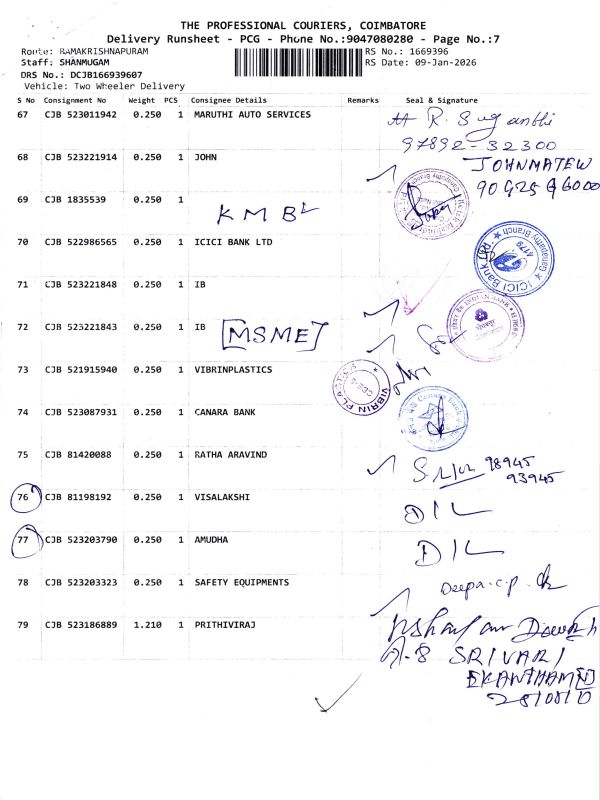 THE PROFESSIONAL COURIERS, COIMBATORE
Delivery Runsheet - PCG - Phone No.:9047080280 - Page No.:7
Route: RAMAKRISHNAPURAM
RS No.: 1669396
Staff: SHANMUGAM
RS Date: 09-Jan-2026
DRS No.: DCJB166939607
Vehicle: Two Wheeler Delivery
S No Consignment No Weight PCS Consignee Details Remarks Seal & Signature
67 CJB 523011942 0.250 1 MARUTHI AUTO SERVICES R. Suganthi
97892-32300
68 CJB 523221914 0.250 1 JOHN JOHNMATEW
69 CJB 1835539 0.250 1
KMBL
70 CJB 522986565 0.250 1 ICICI BANK LTD
ICICI Bank Ganapathy Branch 4179
71 CJB 523221848 0.250 1 IB
72 CJB 523221843 0.250 1 IB [MSME]
73 CJB 521915940 0.250 1 VIBRINPLASTICS
VIBRIN PLASTICS
74 CJB 523087931 0.250 1 CANARA BANK
Canara Bank
75 CJB 81420088 0.250 1 RATHA ARAVIND
98945
93945
76 CJB 81198192 0.250 1 VISALAKSHI D/L
77 CJB 523203790 0.250 1 AMUDHA D/L
78 CJB 523203323 0.250 1 SAFETY EQUIPMENTS Deepa.c.p.
79 CJB 523186889 1.210 1 PRITHIVIRAJ
A-8 SRIVARI